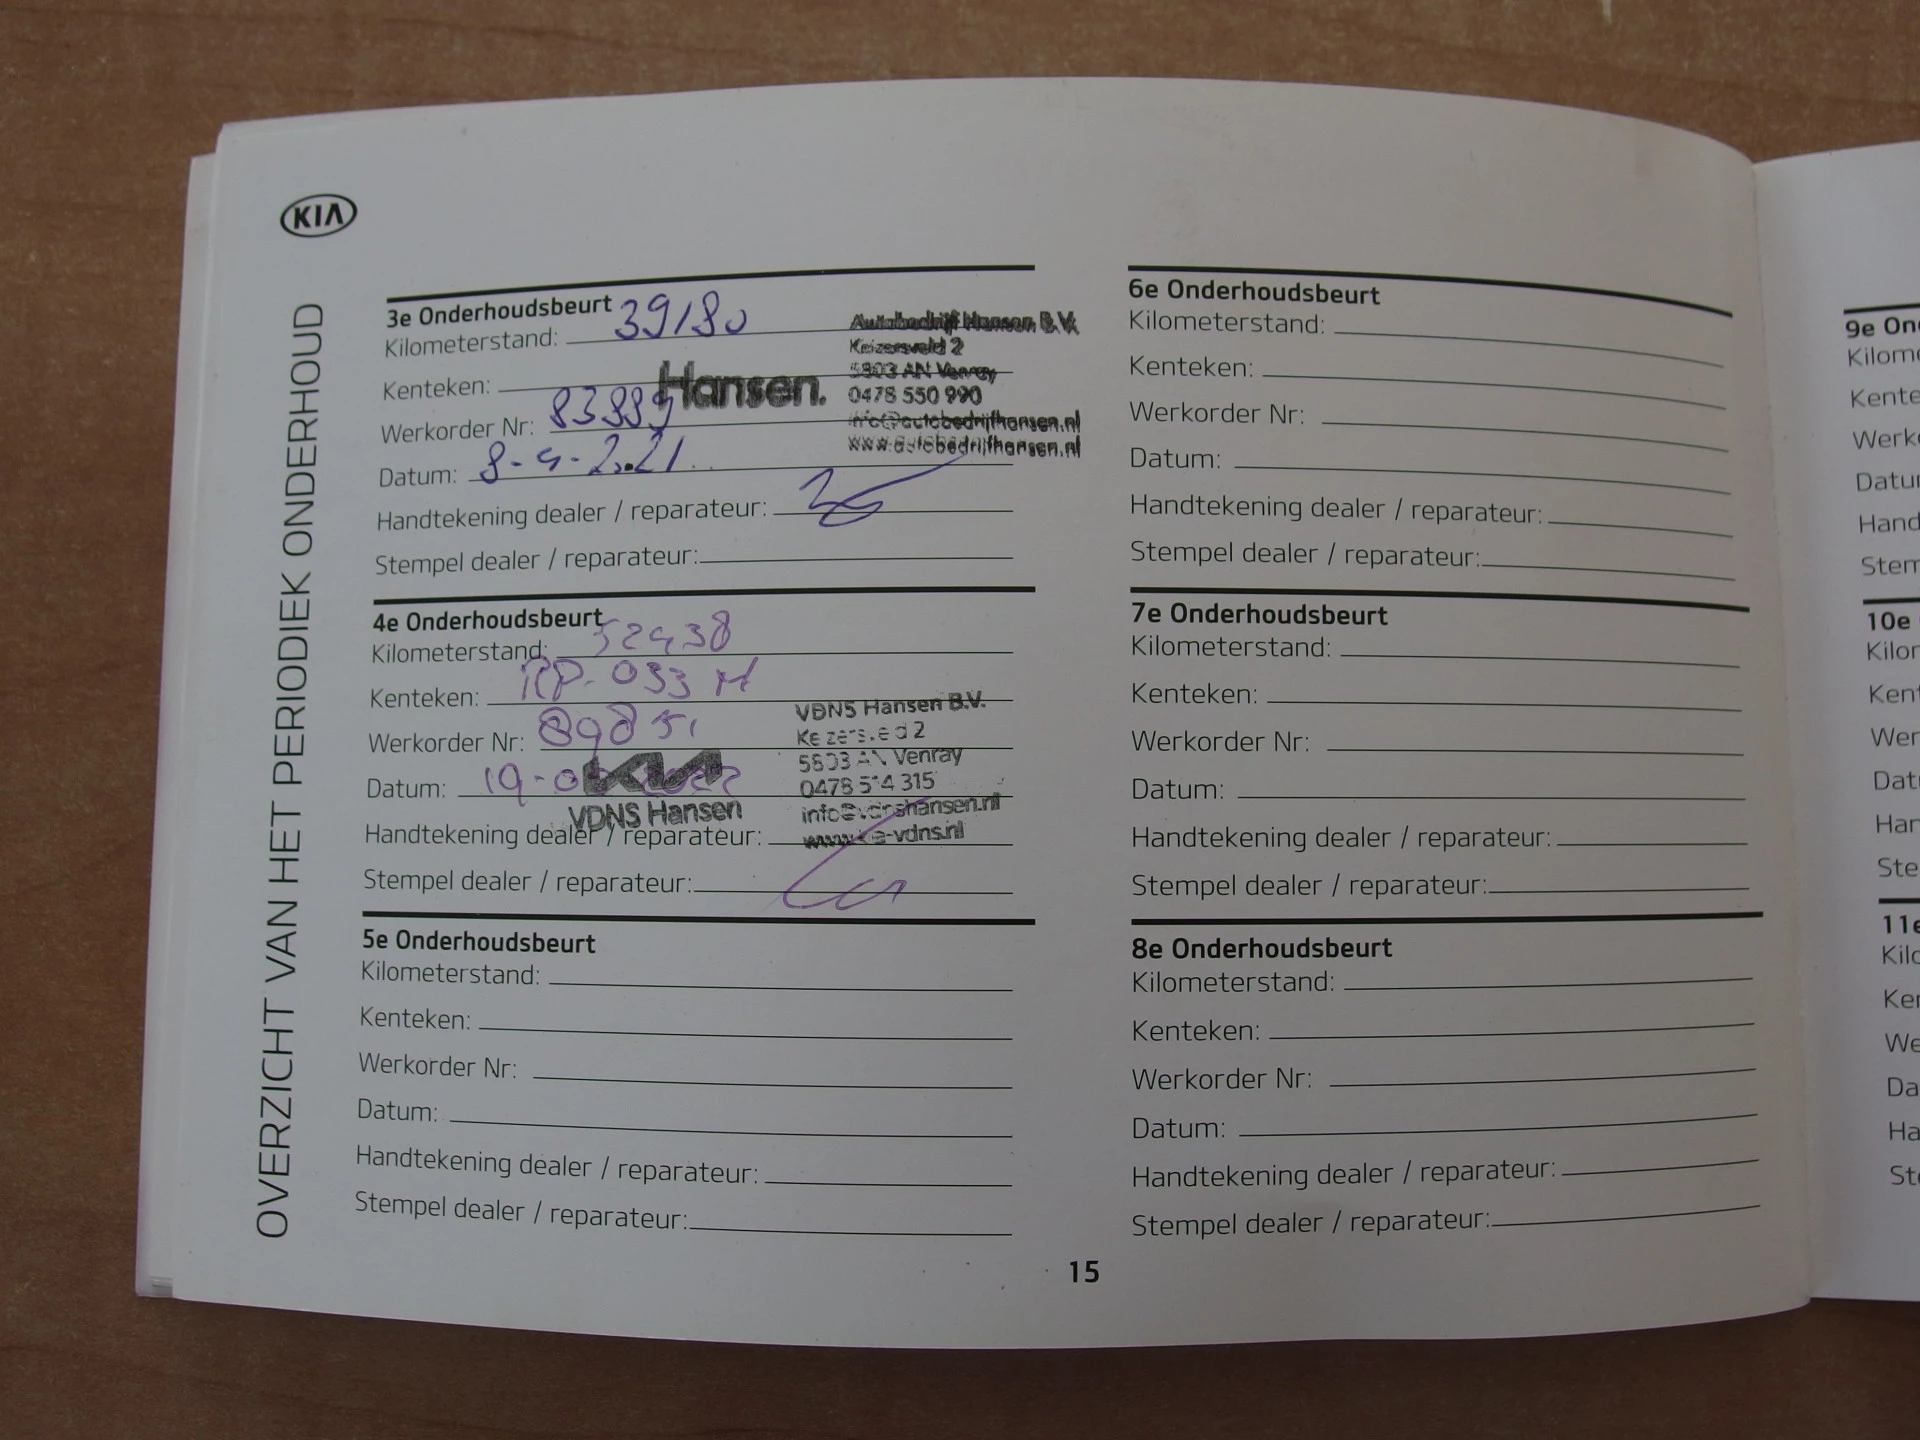 KIA
OVERZICHT VAN HET PERIODIEK ONDERHOUD
3e Onderhoudsbeurt
Kilometerstand: 39180
Kenteken:
Werkorder Nr: 83889
Datum: 8-4-2021
Handtekening dealer / reparateur:
Stempel dealer / reparateur:
Hansen.
Autobedrijf Hansen B.V.
Keizersveld 2
5803 AN Venray
0478 550 990
info@autobedrijfhansen.nl
www.autobedrijfhansen.nl
4e Onderhoudsbeurt
Kilometerstand: 52438
Kenteken: RP-033
Werkorder Nr: 89851
Datum: 19-
Handtekening dealer / reparateur:
Stempel dealer / reparateur:
KIA
VDNS Hansen
VDNS Hansen B.V.
Keizersveld 2
5803 AN Venray
0478 514 315
info@vdnshansen.nl
www.kia-vdns.nl
5e Onderhoudsbeurt
Kilometerstand:
Kenteken:
Werkorder Nr:
Datum:
Handtekening dealer / reparateur:
Stempel dealer / reparateur:
6e Onderhoudsbeurt
Kilometerstand:
Kenteken:
Werkorder Nr:
Datum:
Handtekening dealer / reparateur:
Stempel dealer / reparateur:
7e Onderhoudsbeurt
Kilometerstand:
Kenteken:
Werkorder Nr:
Datum:
Handtekening dealer / reparateur:
Stempel dealer / reparateur:
8e Onderhoudsbeurt
Kilometerstand:
Kenteken:
Werkorder Nr:
Datum:
Handtekening dealer / reparateur:
Stempel dealer / reparateur:
15
9e On
Kilome
Kente
Werk
Datu
Hand
Stem
10e
Kilor
Kent
Wer
Dat
Har
Ste
11e
Kilo
Ker
We
Da
Ha
St